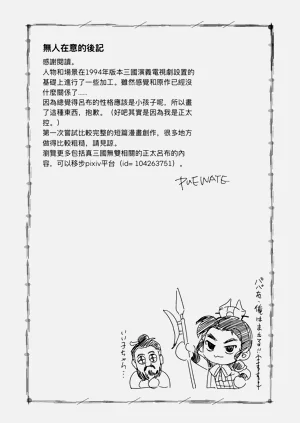 無人在意的後記
感謝閱讀。
人物和場景在1994年版本三國演義電視劇設置的
基礎上進行了一些加工。雖然感和原作已經沒
什麼關係了.....
因為總覺得呂布的性格應該是小孩子呢，所以畫
了這種東西，抱歉。（好吧其實是因為我是正太
控。）
第一次嘗試比較完整的短篇漫畫創作，很多地方
做得比較粗糙，請見諒。
瀏覽更多包括真三國無雙相關的正太呂布的內
容，可以移步pixiv平台（id= 104263751）。
PUEWATE
いい子ちゃん…